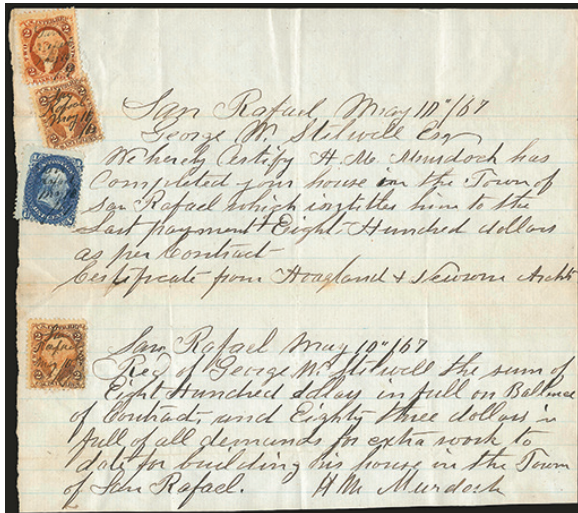 San Rafael, May 10"/67
George W. Stilwell Esq
We hereby Certify H. M. Murdoch has
Completed your house in the Town of
San Rafael which intitles him to the
Last payment Eight Hundred dollars
as per Contract
Certificate from Hoagland & Newsom Archts
San Rafael May 10"/67
Recd of George W. Stilwell the sum of
Eight Hundred dollars in full on Ballance
of Contract and Eighty three dollars in
full of all demands for extra work to
date for building his house in the Town
of San Rafael. H M Murdoch
San
Rafael
May 10
San
Rafael